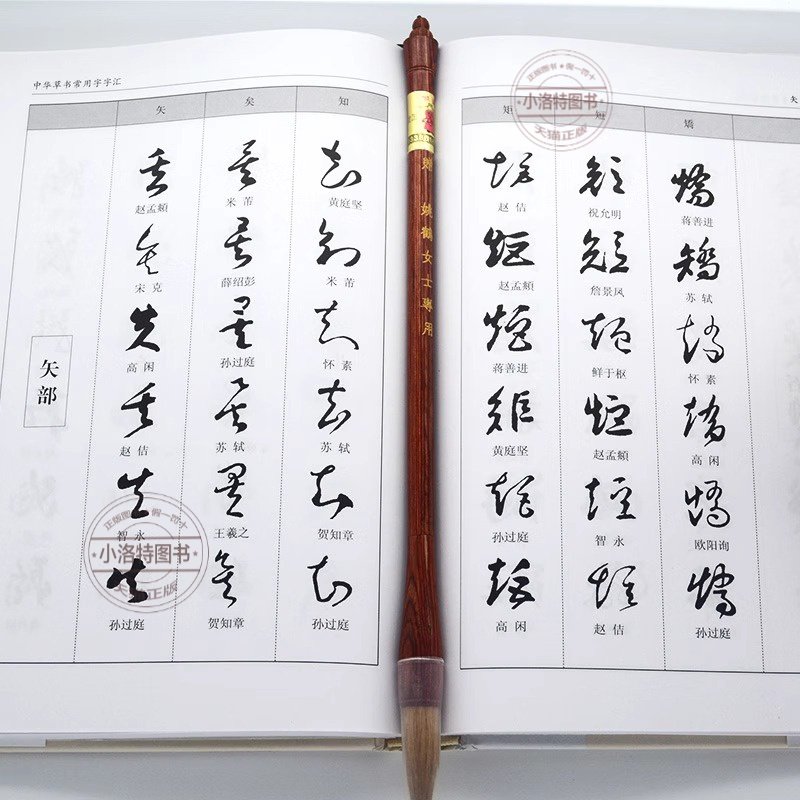 中华草书常用字字汇
矢 矣 知
赵孟頫 米芾 黄庭坚
宋克 薛绍彭 米芾
高闲 孙过庭 怀素
赵佶 苏轼 苏轼
智永 王羲之 贺知章
孙过庭 贺知章 孙过庭
矢部
姚鹤女士專用
矩 短 矯
赵佶 祝允明 蒋善进
赵孟頫 詹景凤 苏轼
蒋善进 鲜于枢 怀素
黄庭坚 赵孟頫 高闲
孙过庭 智永 欧阳询
高闲 赵佶 孙过庭
正版图书 假一罚十
小洛特图书
天猫正版
正版图书 假一罚十
小洛特图书